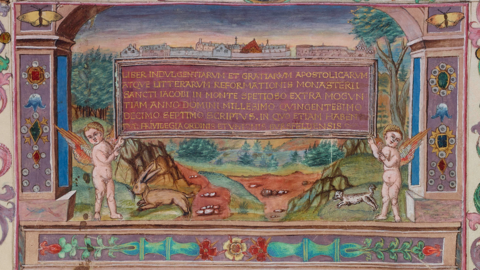 LIBER INDULGENTIARUM ET GRATIARUM APOSTOLICARUM
ATQVE LITTERARUM REFORMATIONIS MONASTERII
SANCTI IACOBI IN MONTE SPETIOSO EXTRA MOGUN
TIAM ANNO DOMINI MILLESIMO QUINGENTESIMO
DECIMO SEPTIMO SCRIPTVS, IN QVO ETIAM HABEN